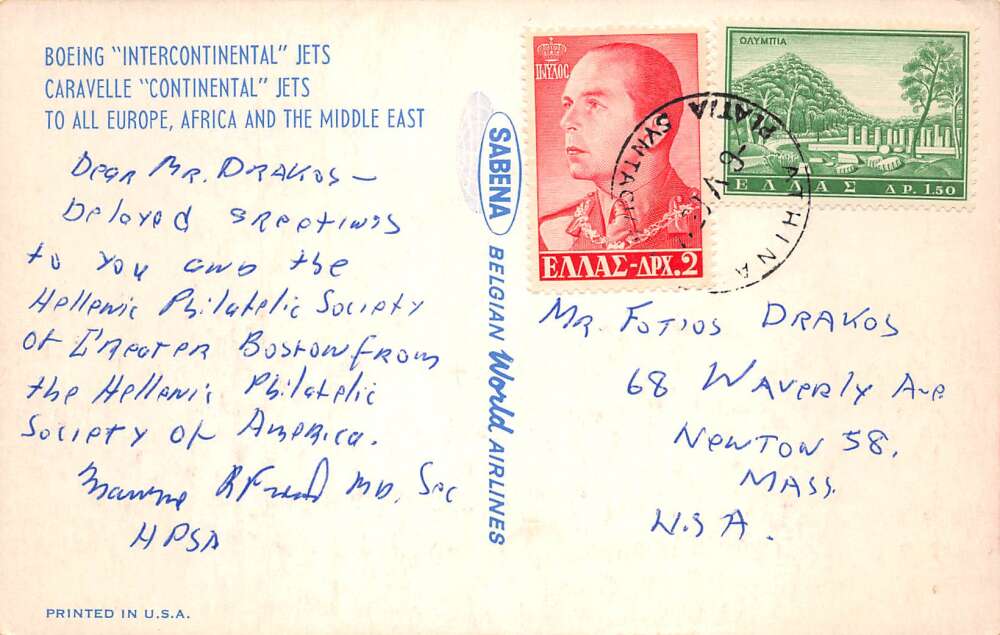 BOEING "INTERCONTINENTAL" JETS
CARAVELLE "CONTINENTAL" JETS
TO ALL EUROPE, AFRICA AND THE MIDDLE EAST
Dear Mr. Drakos —
Belated Greetings
to you and the
Hellenic Philatelic Society
of Greater Boston from
the Hellenic Philatelic
Society of America.
R Friend MD. Sec
HPSA
PRINTED IN U.S.A.
SABENA
BELGIAN World AIRLINES
ΠΑΥΛΟΣ
ΕΛΛΑΣ-ΔΡΧ.2
ΟΛΥΜΠΙΑ
ΕΛΛΑΣ ΔΡ. 1.50
PLATIA
ATHINA
Mr. Fotios Drakos
68 Waverly Ave
Newton 58.
Mass.
U.S.A.